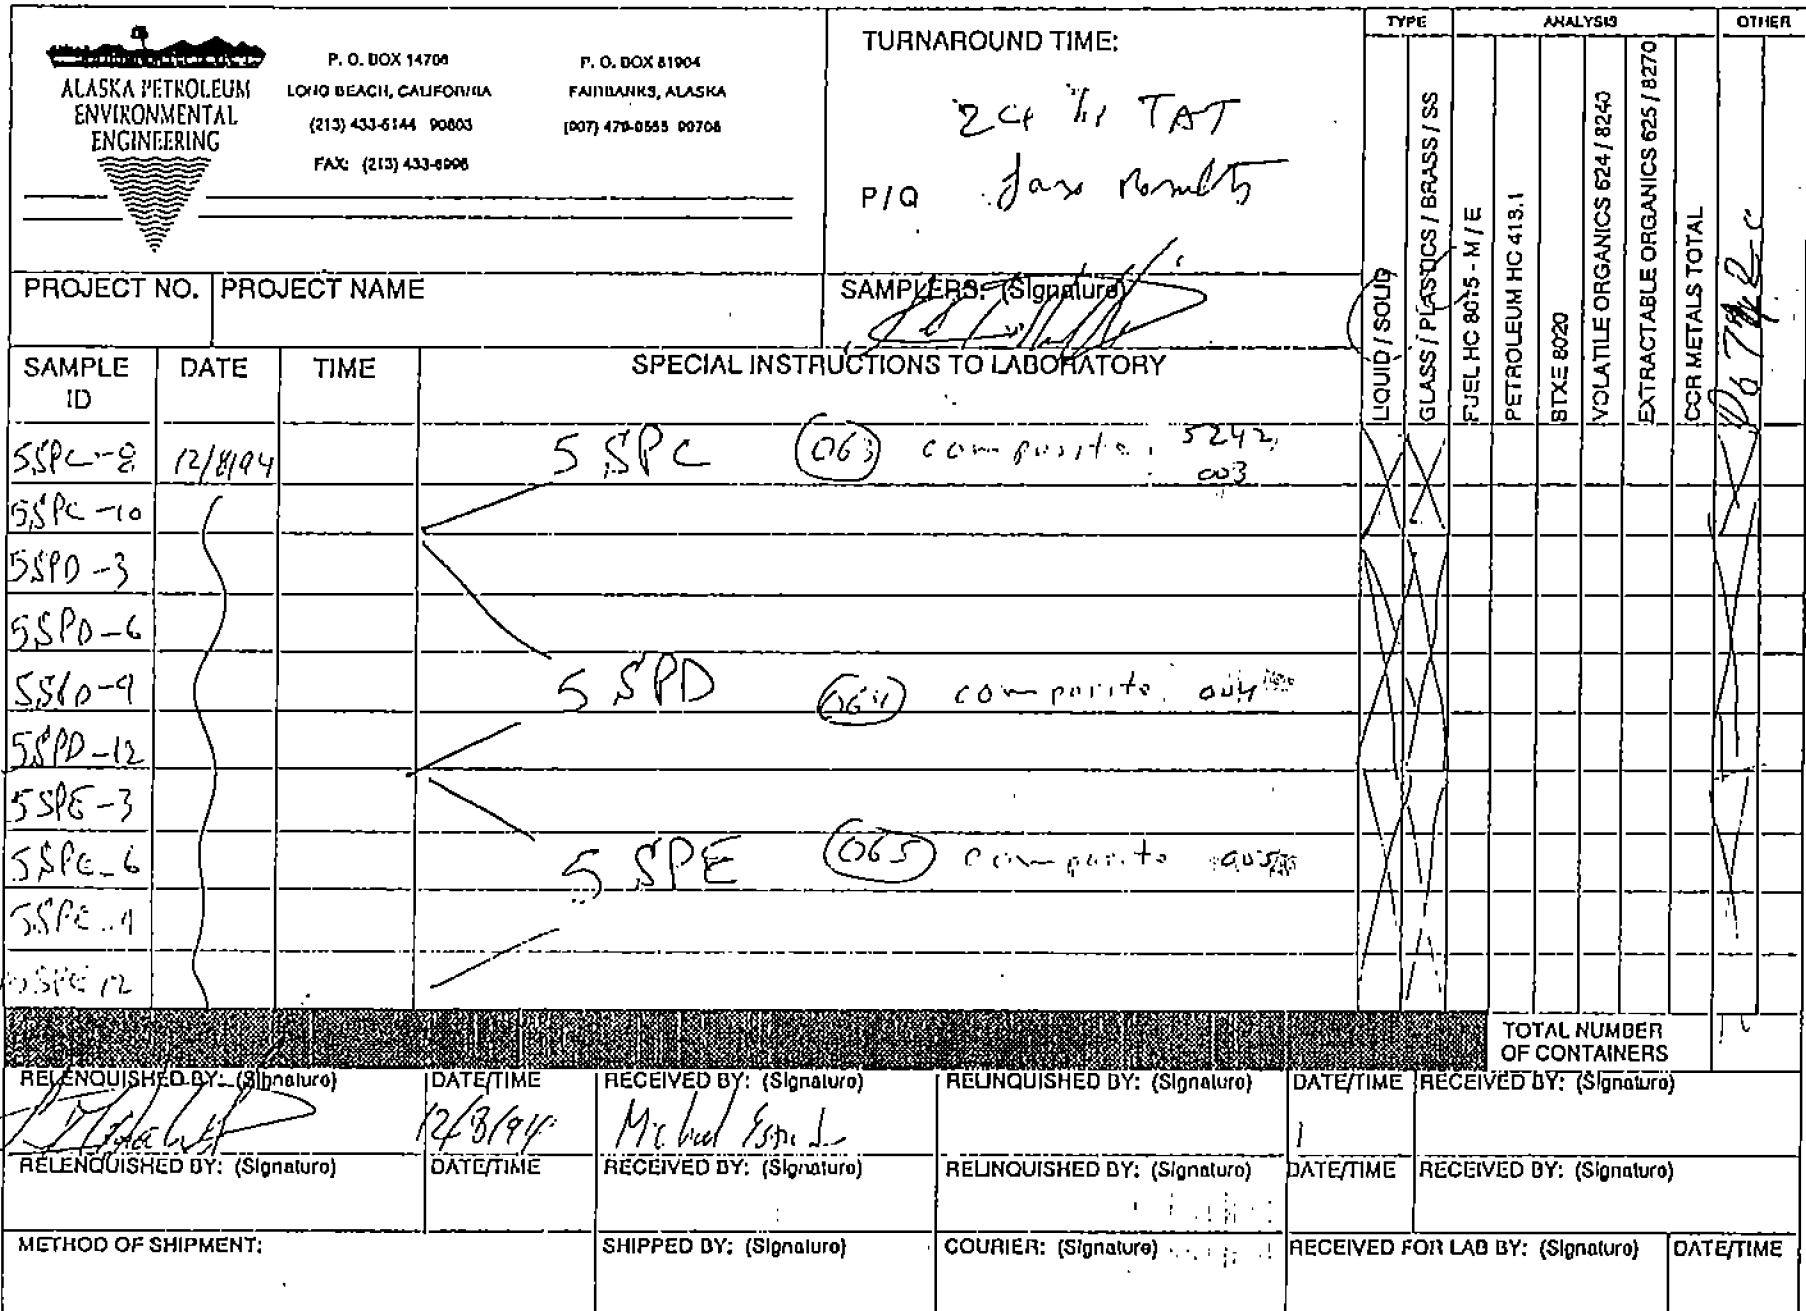 ALASKA PETROLEUM
ENVIRONMENTAL
ENGINEERING
P. O. BOX 14706
LONG BEACH, CALIFORNIA
(213) 433-6144 90803
FAX: (213) 433-6996
P. O. BOX 81904
FAIRBANKS, ALASKA
(907) 479-0555 99708
TURNAROUND TIME:
24 Hr TAT
P/Q
TYPE
ANALYSIS
OTHER
LIQUID / SOLID
GLASS / PLASTICS / BRASS / SS
FUEL HC 8015 - M / E
PETROLEUM HC 413.1
BTXE 8020
VOLATILE ORGANICS 624 / 8240
EXTRACTABLE ORGANICS 625 / 8270
CCR METALS TOTAL
Pb 742
PROJECT NO.
PROJECT NAME
SAMPLERS: (Signature)
SAMPLE
ID
DATE
TIME
SPECIAL INSTRUCTIONS TO LABORATORY
5SPC-8 12/8/94 5 SPC 063 composite 5242,
003
5SPC-10
5SPD-3
5SPD-6
5SPD-9 5 SPD 064 composite 004
5SPD-12
5SPE-3
5SPE-6 5 SPE 065 composite 005
5SPE-9
5SPE 12
TOTAL NUMBER
OF CONTAINERS
RELENQUISHED BY: (Signature) DATE/TIME RECEIVED BY: (Signature) RELINQUISHED BY: (Signature) DATE/TIME RECEIVED BY: (Signature)
12/8/94 Michael
RELENQUISHED BY: (Signature) DATE/TIME RECEIVED BY: (Signature) RELINQUISHED BY: (Signature) DATE/TIME RECEIVED BY: (Signature)
METHOD OF SHIPMENT: SHIPPED BY: (Signature) COURIER: (Signature) RECEIVED FOR LAB BY: (Signature) DATE/TIME